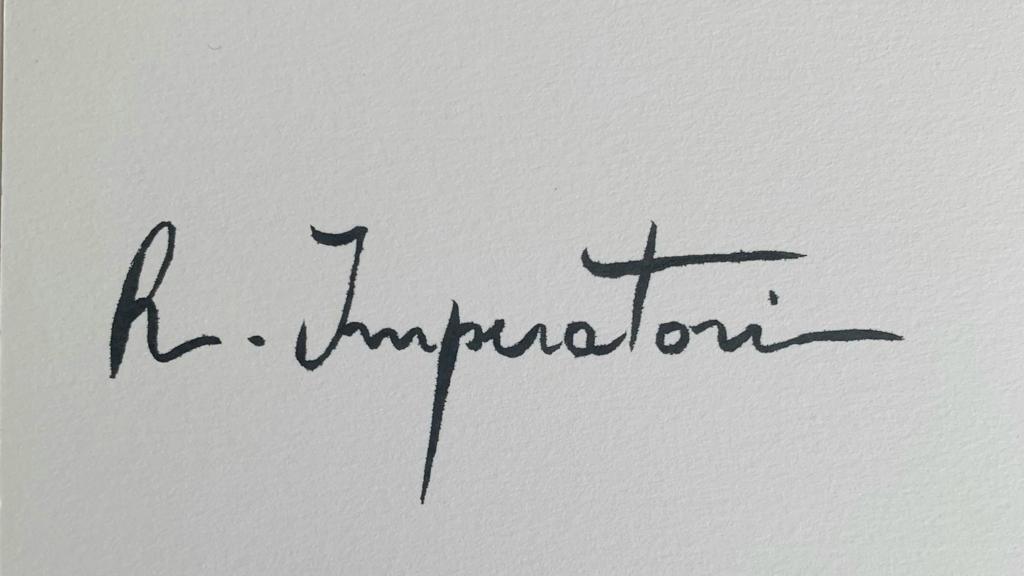 R. Imperatori